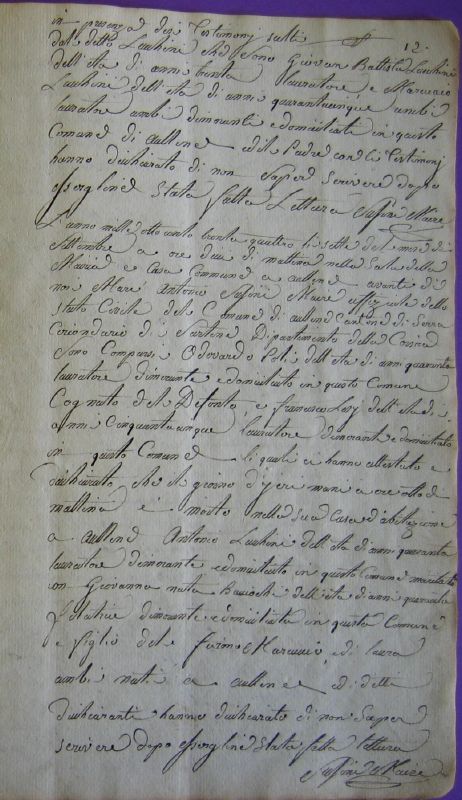 in presenza dei Testimonj suddi 12.
dal detto Luchini che sono Giovan Battista Luchini
dell'età di anni trenta lauratore e Marcurio
Luchini dell'età di anni quarantacinque ambi
lauratori ambi dimoranti e domiciliati in questo
Comune di aullene ed il Padre con li Testimonj
hanno dichiarato di non saper scrivere dopo
essergline stata fatta lettura Susini Maire
L'anno mille otto cento trenta quattro li sette del mese di
Settembre a ore dieci di mattina nella sala della
Mairie e Casa Commune a aullene avanti di
noi Maire Antonio Susini Maire uffiziale dello
stato Civile del Comune di aullene Cantone di Serra
Circondario di Sartene Dipartimento della Corsica
sono Comparsi Odoardo Poli dell'età di anni quaranta
lauratore dimorante e domiciliato in questo Comune
Cognato del Defonto, e Francesco dell'età di
anni Cinquantacinque lauratore dimorante e domiciliato
in questo Comune li quali ci hanno attestato e
dichiarato che il giorno d'jeri mani a ore otto di
mattina è morto nella sua Casa d'abitazione
a aullene Antonio Luchini dell'età di anni quaranta
lauratore dimorante e domiciliato in questo Comune maritato
con Giovanna nata dell'età di anni quaranta
filatrice dimorante e domiciliata in questo Comune
e figlio del fu Marcurio, e di laura
ambi nati a aullene ed i detti
Dichiaranti hanno dichiarato di non saper
scrivere dopo essergline stata fatta lettura
Susini Maire